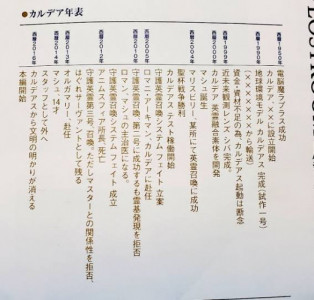 ●カルデア年表
西暦1950年 電脳魔ラプラス成功
カルデア、××に設立開始
地球環境モデル カルデアス 完成(試作一号)
(×××××××から輸送)
資金・資材不足の為、カルデアス起動は断念
西暦1999年 近未来観測レンズ・シバ完成。
カルデア 英霊融合素体を開発
マシュ誕生
西暦2004年 マリスビリー、某所にて英霊召喚に成功
聖杯戦争勝利
カルデアス テスト稼働開始
守護英霊召喚システム フェイト 立案
西暦2005年 ロマニ・アーキマン、カルデアに赴任
西暦2010年 守護英霊召喚、第二号に成功するも霊基発現を拒否
ロマン、マシュの主治医になる。
守護英霊召喚システム フェイト 成立
アニムスフィア所長、死亡
守護英霊第三号、召喚。ただしマスターとの関係性を拒否、
はぐれサーヴァントとして残る
オルガマリー、赴任
マシュ、14才
スタッフとして外へ
西暦2016年 カルデアスから文明の明かりが消える
本編開始